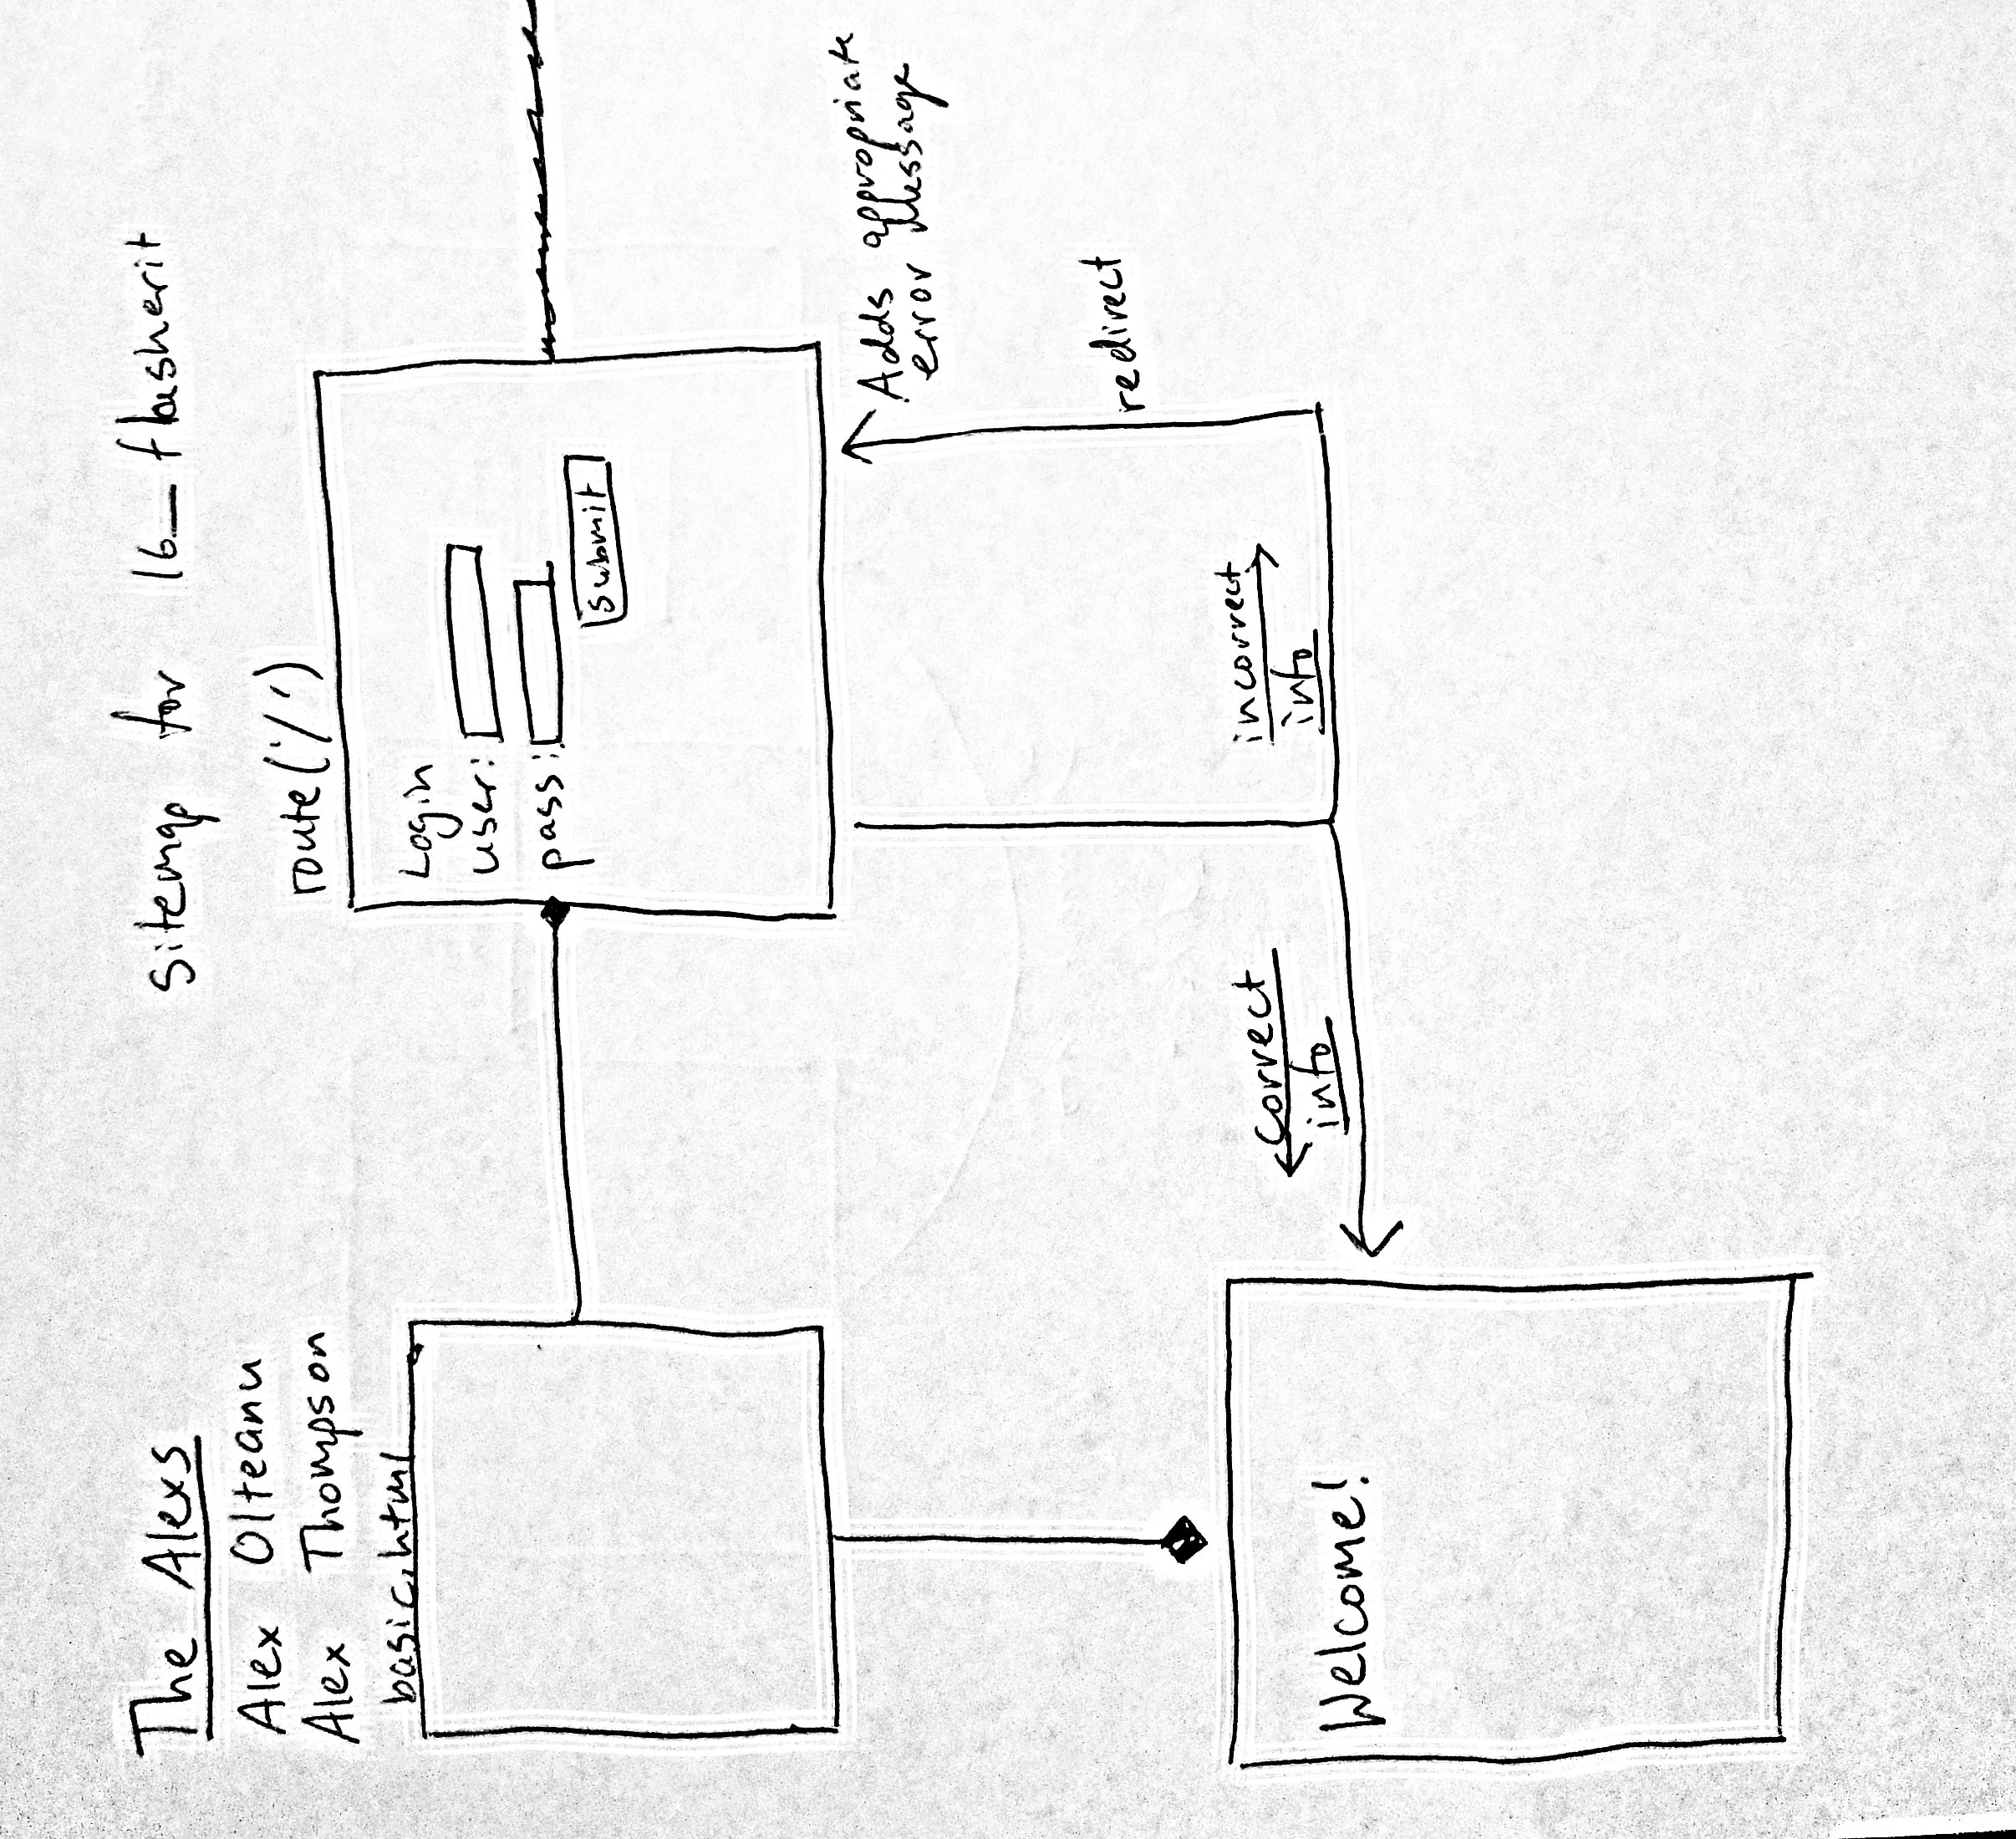 The Alexs
Alex Olteanu
Alex Thompson
Sitemap for 16_flasherit
basic.html
route('/')
Login
user:
pass:
submit
Adds appropriate
error message
redirect
incorrect
info
correct
info
Welcome!